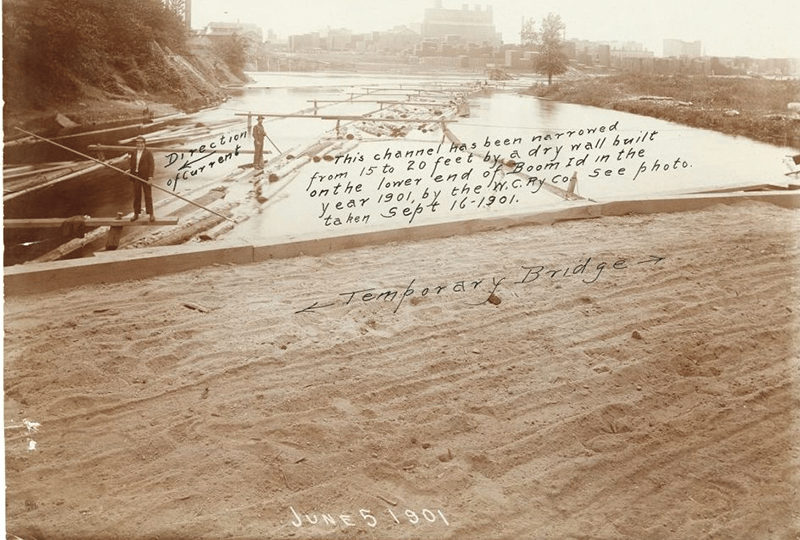 Direction
of Current
This channel has been narrowed
from 15 to 20 feet by a dry wall built
on the lower end of Boom Id in the
year 1901, by the W.C.Ry Co. See photo.
taken Sept 16-1901.
Temporary Bridge
JUNE 5 1901